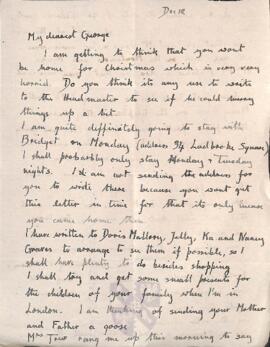 Dec 12
My dearest George
I am getting to think that you wont
be home for Christmas which is very very
horrid. Do you think its any use to write
to the Headmaster to see if he could hurry
things up a bit.
I am quite deffinately going to stay with
Bridget on Monday (address 94 Ladbroke Square)
I shall probably only stay Monday & Tuesday
nights. I am not sending the address for
you to write there because you wont get
this letter in time for that its only incase
you came home then
I have written to Doris Mallory, Jelly, Ka and Nancy
Graves to arrange to see them if possible, so I
shall have plenty to do besides shopping
I shall try and get some small presents for
the children of your family when I'm in
London. I am thinking of sending your Mother
and Father a goose
Mrs rang me up this morning to say